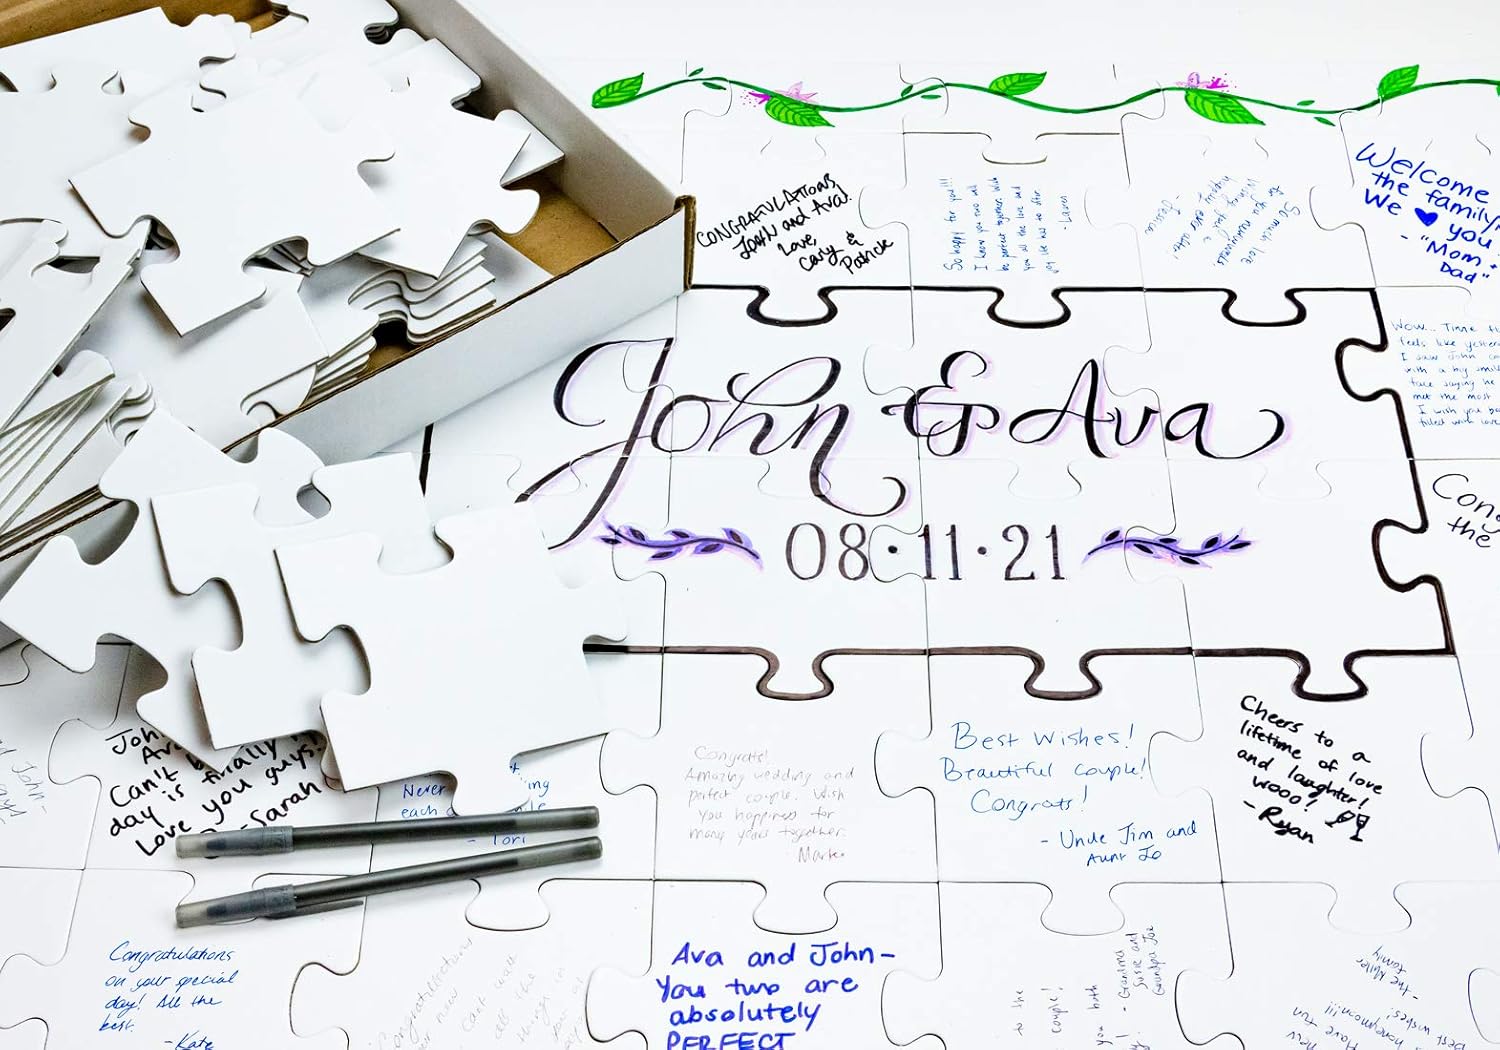 CONGRATULATIONS
JOHN and AVA!
Love,
Cary &
Patrick
So happy for you!!!
I know you two will
be perfect together. Wish
you all the love and
joy life has to offer
- Lauren
So much love
to you newlyweds!
Wishing you a
happily ever after
- Jessica
Welcome
the family
We ♥ you
- "Mom
Dad"
Wow... Time
feels like yester
I saw John
with a big smile
face saying he
met the most
I wish you
filled with love
John & Ava
08·11·21
Cong
the
Joh
Av
Can't b
day is finally
Love you guys!
- Sarah
Never
each
- Tori
Congrats!
Amazing wedding and
perfect couple. Wish
you happiness for
many years together.
Best Wishes!
Beautiful couple!
Congrats!
- Uncle Jim and
Aunt Jo
Cheers to a
lifetime of love
and laughter!
wooo!
- Ryan
Congratulations
on your special
day! All the
best.
- Kate
Congratulations
new
Ava and John-
You two are
absolutely
PERFECT
to the
couple!
you both
- Grandma
Susie and
Grandpa Joe
- the Miller
family
Best wishes!
honeymoon!!!
Have fun